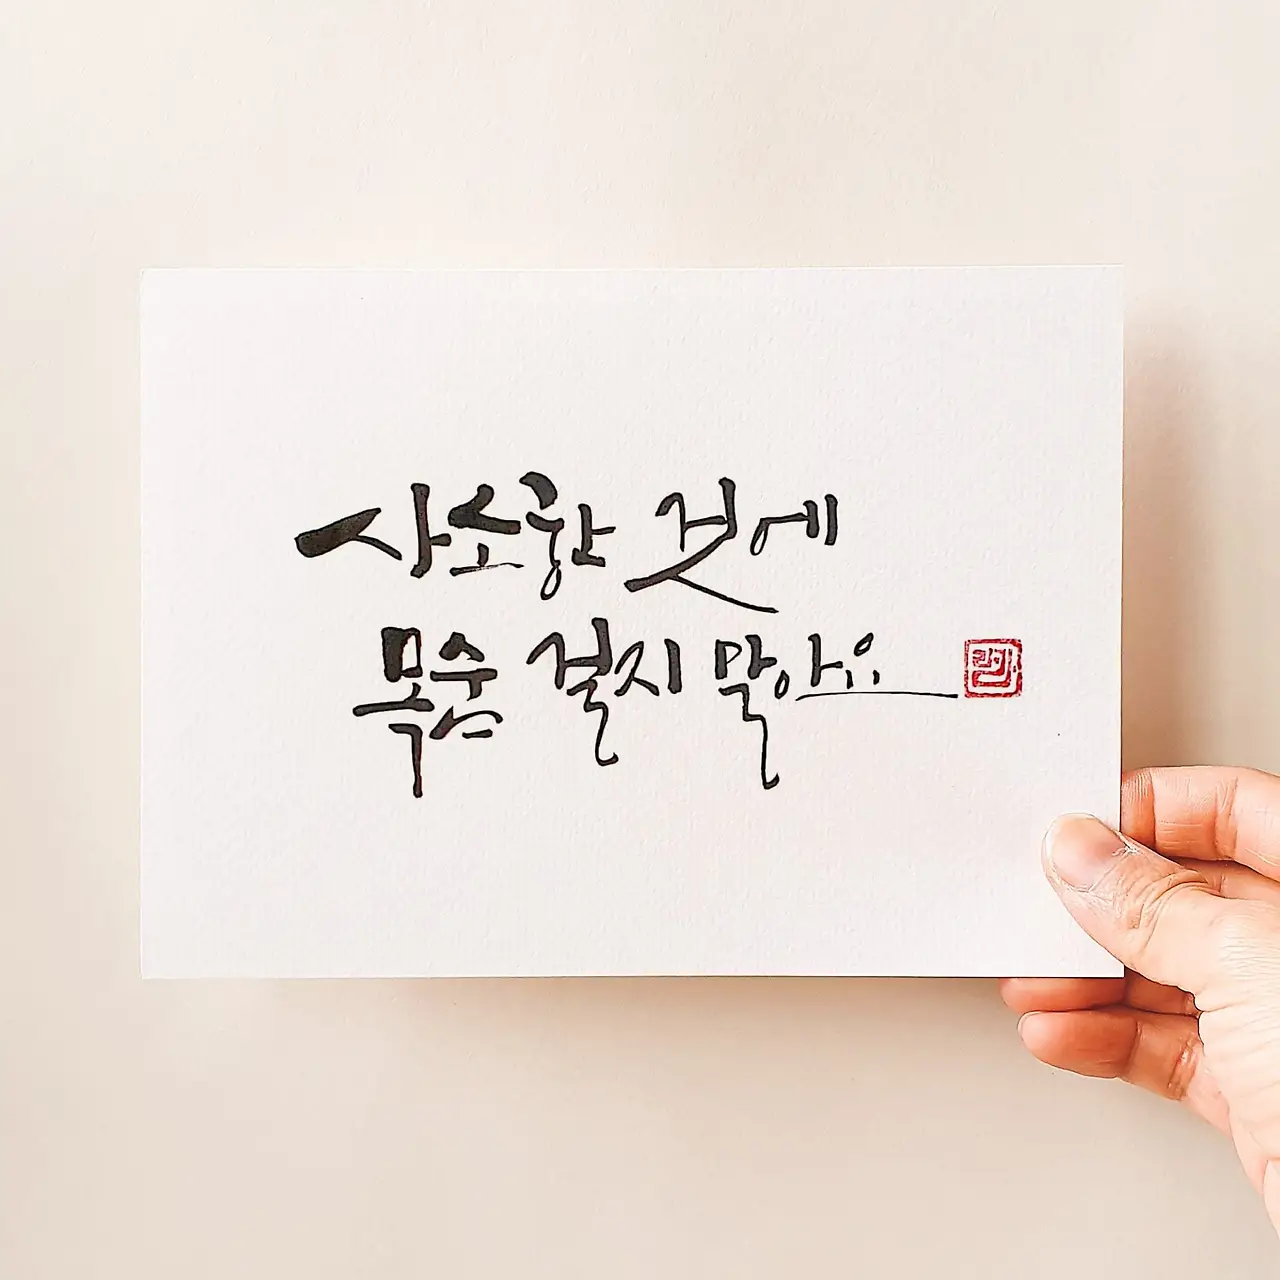 사소한 것에
목숨 걸지 말아요